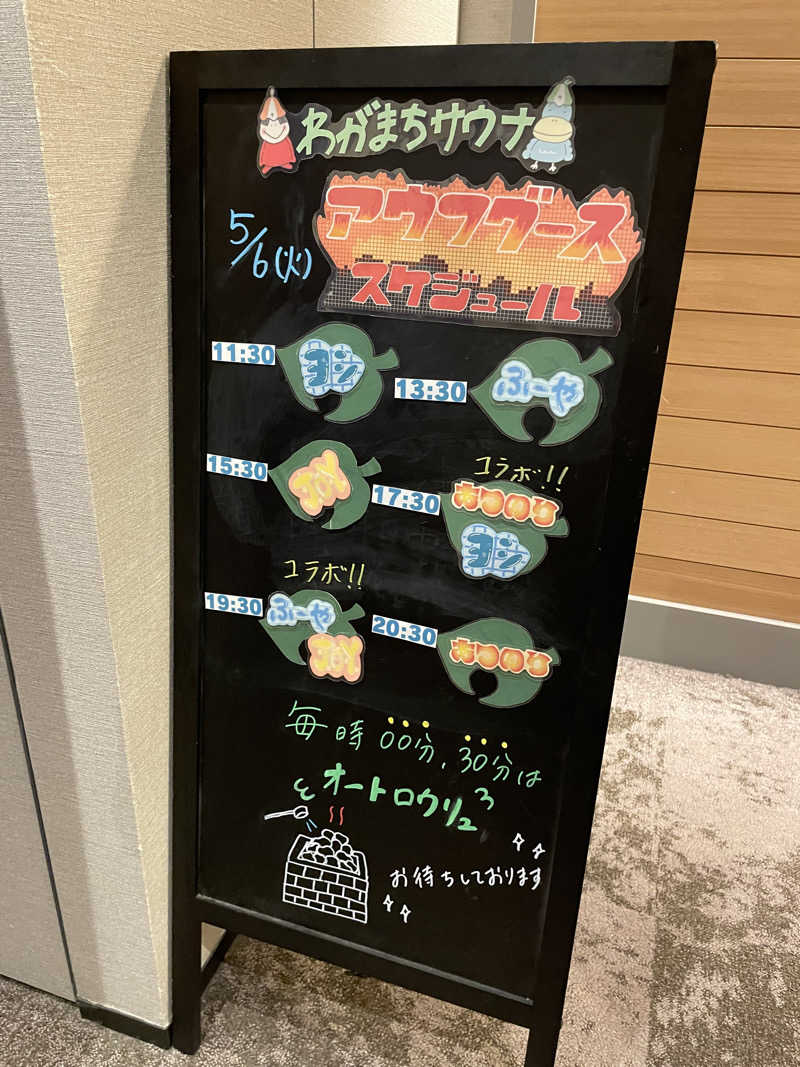 わがまちサウナ
アウフグース
スケジュール
5/6(火)
11:30 ヨシ
13:30 ふーや
15:30 JOY
コラボ!!
17:30 あゆのな
ヨシ
コラボ!!
19:30 ふーや
JOY
20:30 あゆのな
毎時00分、30分は
オートロウリュ
お待ちしております